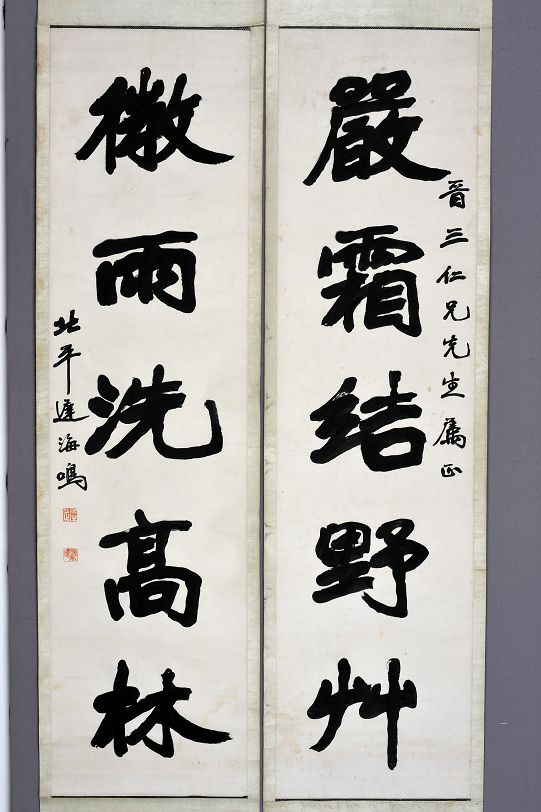 嚴霜結野艸
晉三仁兄先生屬正
微雨洗高林
北平達海鳴